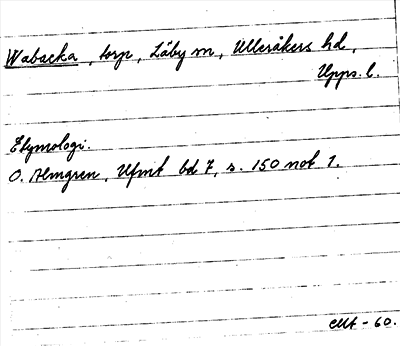 Wabacka, torp, Läby sn, Ulleråkers hd,
Upps. l.
Etymologi.
O. Almgren, Ufmt bd 7, s. 150 not 1.
-60.